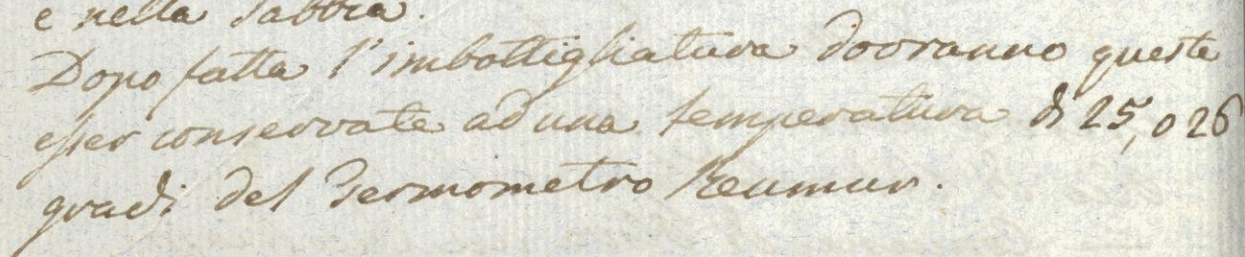 e nella Sabbia.
Dopo fatta l'imbottigliatura dovranno queste
esser conservate ad una temperatura di 25, o 26
gradi del Termometro Reumur.